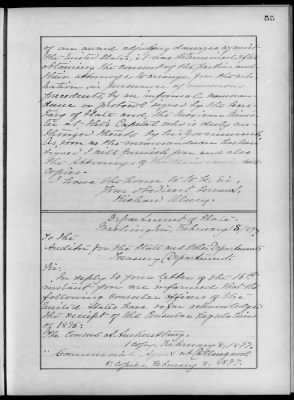 55
of an award adjudging damages against
the United States, it was determined after
obtaining the consent of the parties and
their attorneys to arrange for the arbi-
tration in pursuance of numerous
precedents by an informal memoran-
dum or protocol signed by the Secre-
tary of State and the Mexican Minis-
ter at this Capital who is duly au-
thorized thereto by his government.
As soon as the memorandum has been
signed I will furnish you and also
the Attorneys of the
copies.
I have the honor to be, Sir,
Your obedient servant,
Richard Olney.
Department of State.
Washington, February 1897
To the
Auditor for the State and Other Departments
Treasury Department.
Sir:
In reply to your letter of the 18th
instant you are informed that the
following consular officers of the
United States have acknowledged
the receipt of the Consular Regulations
of 1896:
The Consul at Amherstburg,
1 copy, February 8, 1897.
" Commercial Agent at Collingwood
copies, February 8, 1897.